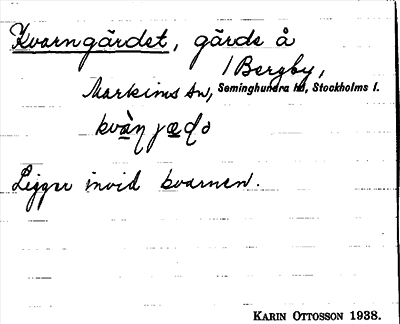 Kvarngärdet, gärde å
/ Bergby,
Markims sn, Seminghundra hd, Stockholms l.
kvàn jædə
Ligger invid kvarnen.
KARIN OTTOSSON 1938.